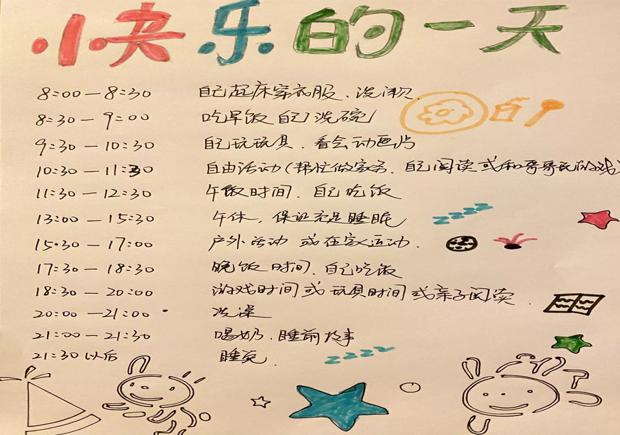 小快乐的一天
8:00—8:30 自己起床穿衣服、洗漱
8:30—9:00 吃早饭自己洗碗
9:30—10:30 自己玩玩具、看会动画片
10:30—11:30 自由活动(帮忙做家务、自己阅读或和哥哥玩游戏)
11:30—12:30 午饭时间、自己吃饭
13:00—15:30 午休，保证充足睡眠
zzzz
15:30—17:00 户外活动 或在家运动.
17:30—18:30 晚饭时间、自己吃饭
18:30—20:00 游戏时间或玩具时间或亲子阅读
20:00—21:00 洗澡
21:00—21:30 喝奶、睡前故事
21:30以后 睡觉
zzzz